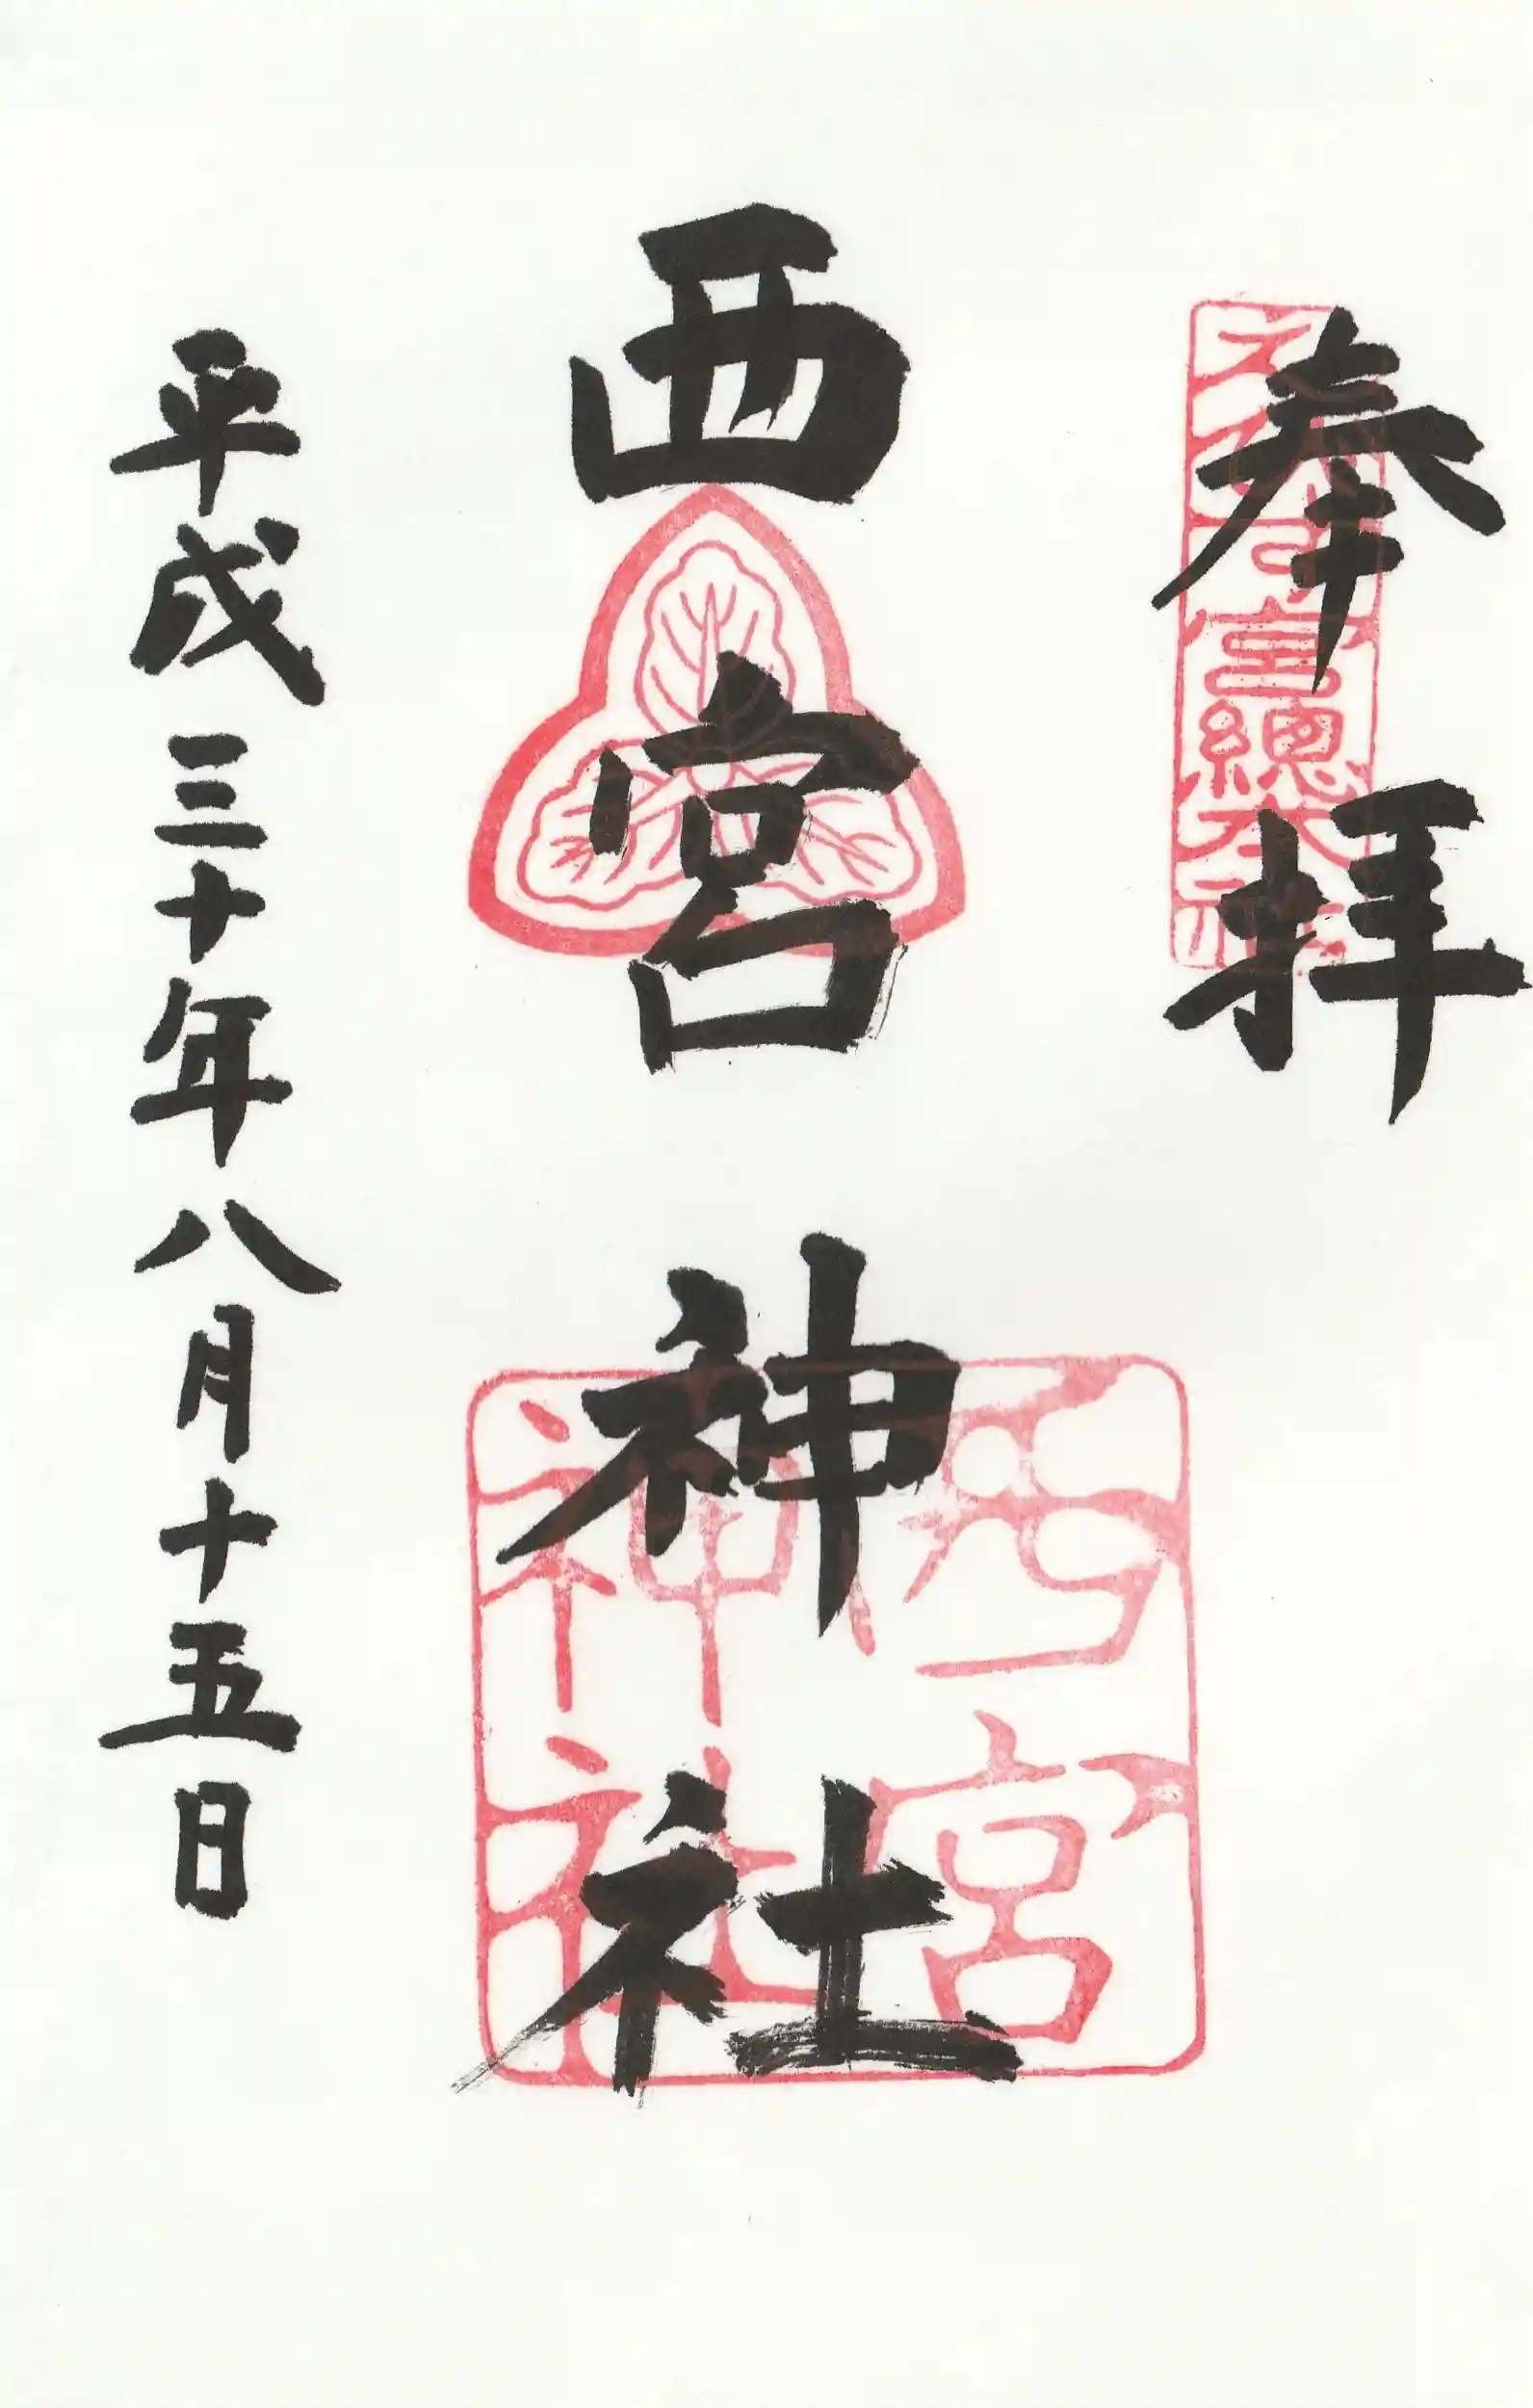 奉拝
西宮神社
西宮
神社
平成三十年八月十五日